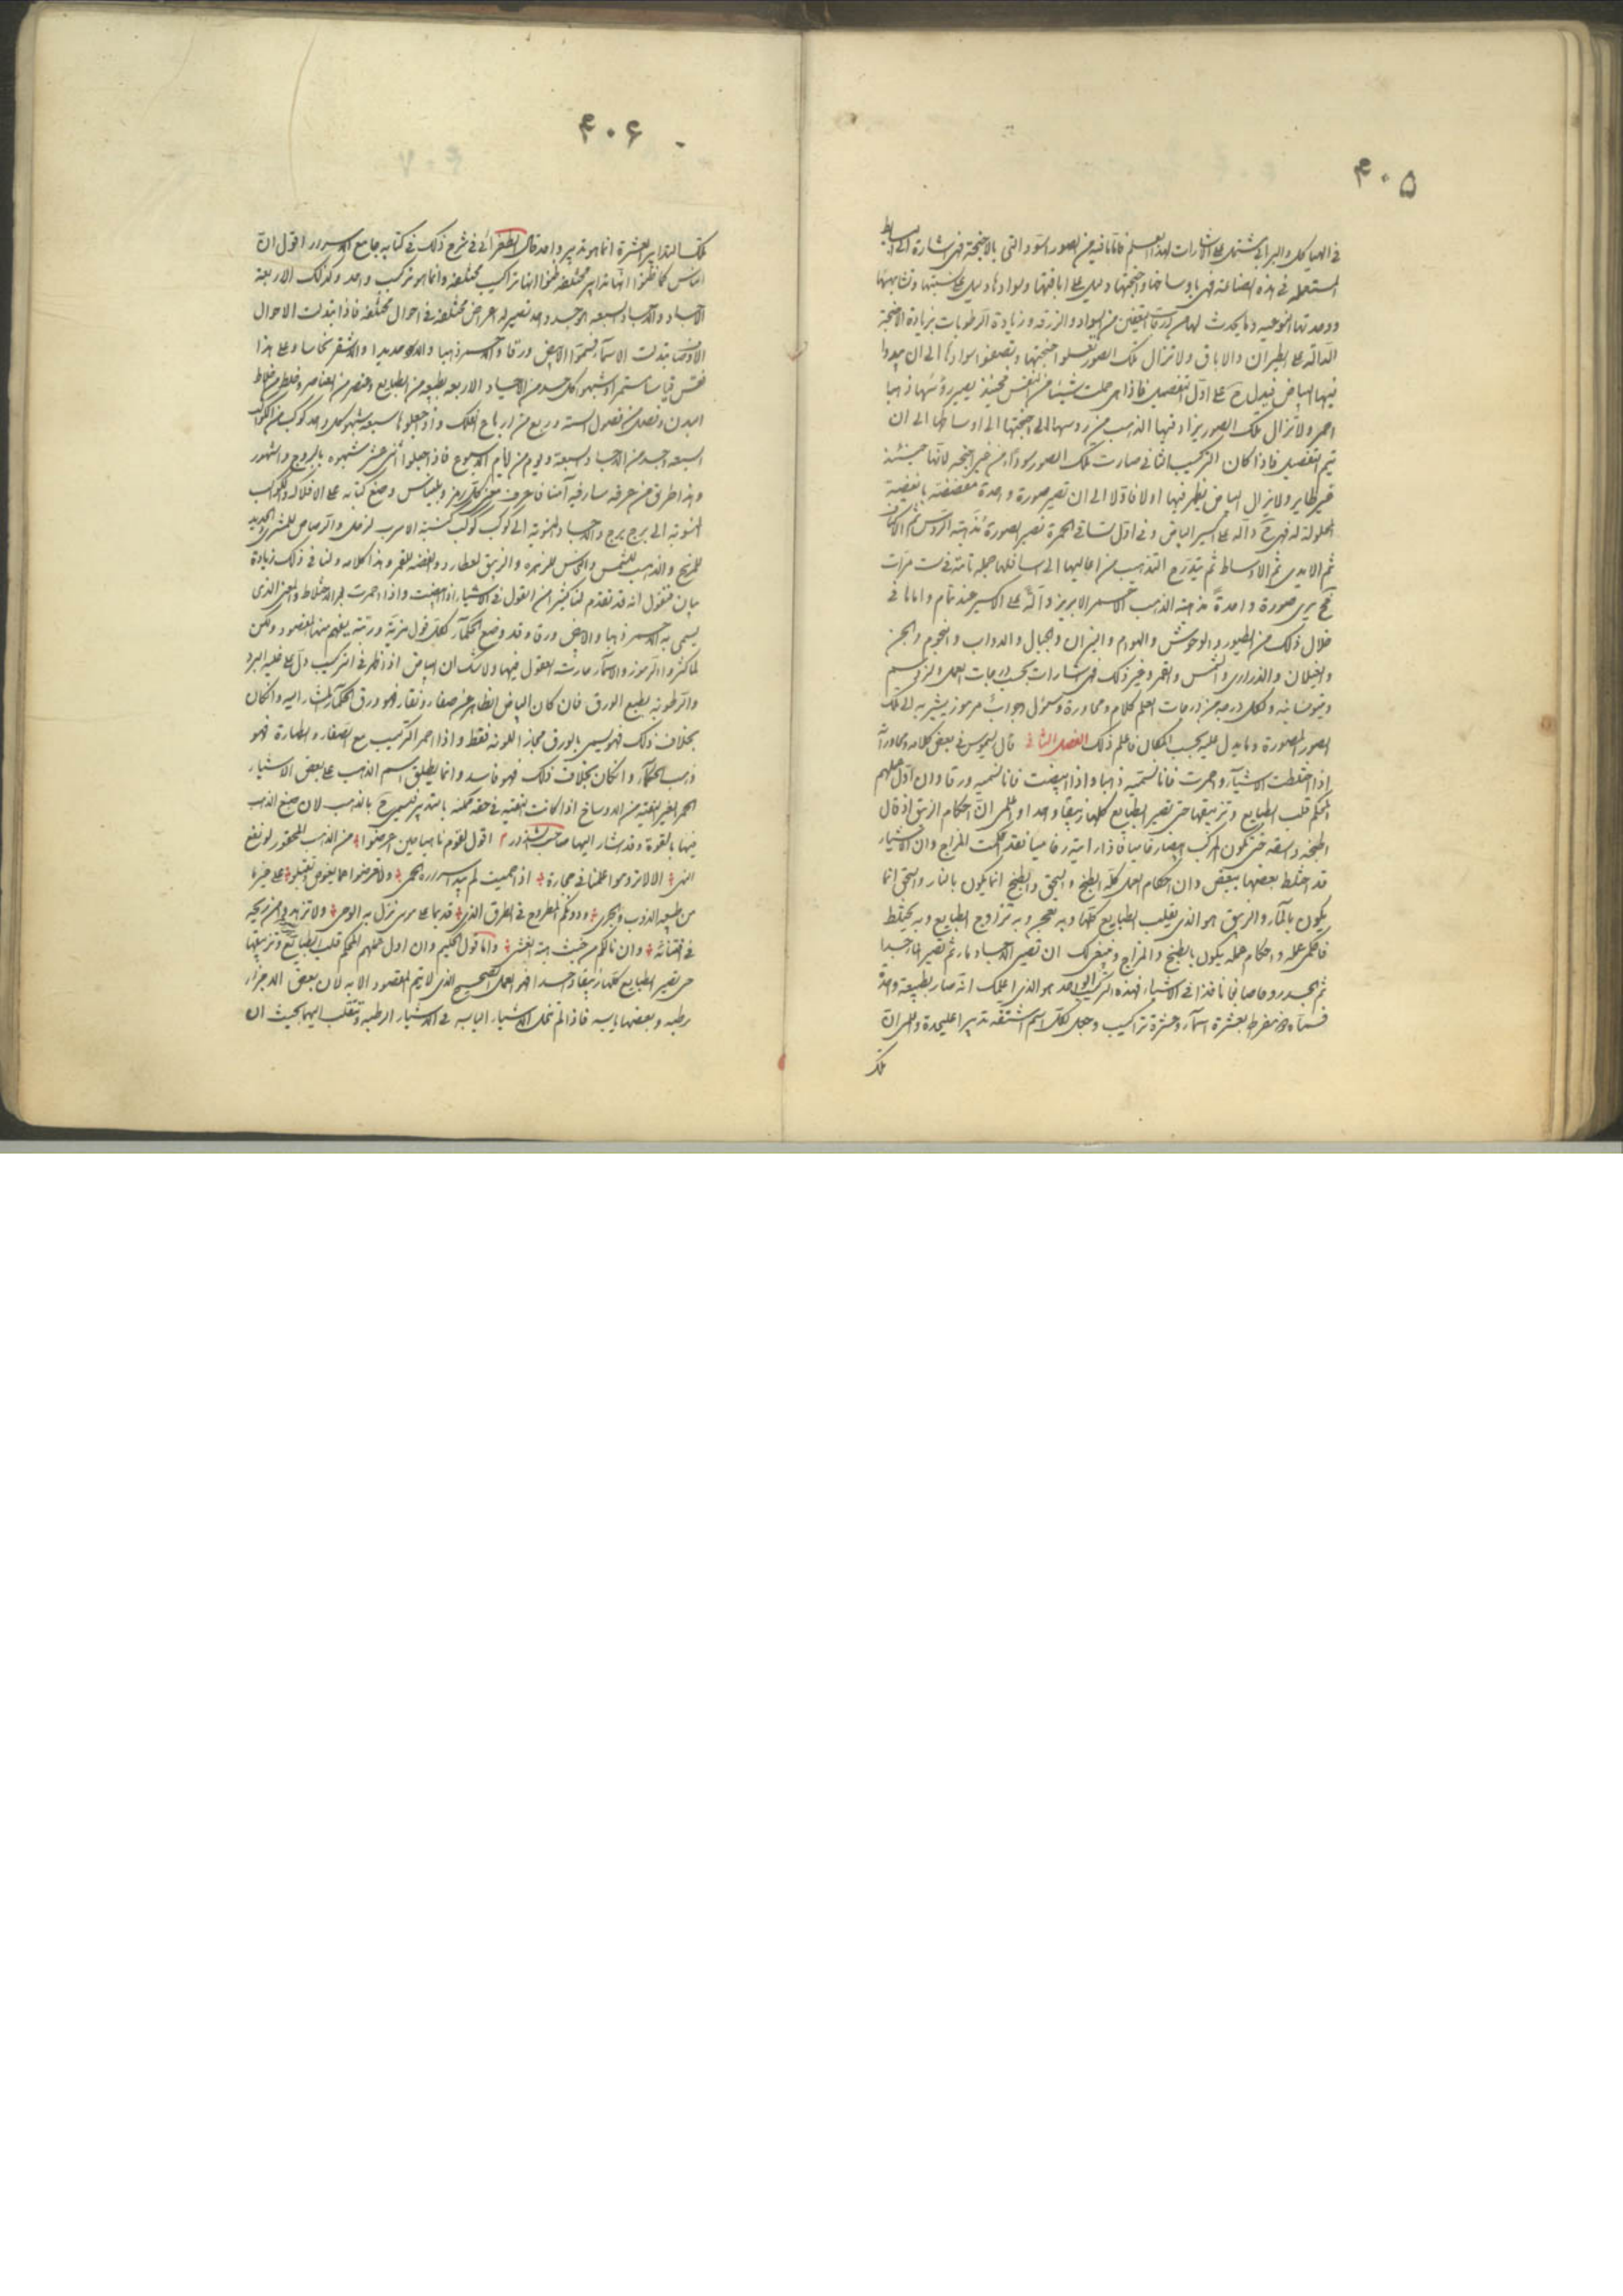 ۴۰۵
في الهياكل والبرابي يشتمل على الاشارات لهذا العلم فاما ما فيه من الصور السود التي بالاجنحة فهي اشارة الى
المستعمله في هذه الصناعة فهي باوساخها واجنحتها دليل على اباقتها وسوادها دليل على
ووحدتها النوعية وما يحدث لها من السواد والزرقة وزيادة الرطوبات بزيادة الاجنحة
الدالة على الطيران والاباق ولا تزال تلك الصور اجنحتها وتصعفوا سوادها الى ان يبدوا
فيها البياض فيدل ح على اول التفصيل فاذا هي حملت شيئا من النفس فحينئذ يصير رؤسها ذهبا
احمر ولا تزال تلك الصور يزاد فيها الذهب من رؤسها الى اجنحتها الى اوساطها الى ان
يتم التفصيل فاذا كان التركيب الثاني صارت تلك الصور سودا من غير اجنحه لانها حينئذ
غير طاير ولا يزال البياض يظهر فيها اولا فاولا الى ان تصير صورة واحدة مفضضة بالفضية
المحلولة له فهي ح دالة على اكسير البياض وفي اول تساقي الحمرة تصير الصورة مذهبة الرؤس ثم الاكتاف
ثم الايدي ثم الاوساط ثم يتدرج التذهيب من اعاليها الى اسافلها جمله تامة في ست مرات
فح يرى صورة واحدة مذهبة الذهب الاحمر الابريز دالة على الاكسير عند تمام واما ما في
خلال ذلك من الطيور والوحوش والهوام والنيران والجبال والدواب والنجوم والجن
والغيلان والذراري والشمس والقمر وغير ذلك فهي اشارات بحسب درجات العمل ولزوم
وقوسانيه ولكل درجة من درجات العلم كلام ومحاورة وسؤال وجواب مرموز يشير به الى تلك
الصور المصورة وما يدل عليه بحسب المكان فاعلم ذلك الفصل الثاني قال في بعض كلامه ومحاوراته
اذا اختلطت الاشياء واحمرت فانا نسميه ذهبا واذا ابيضت فانا نسميه ورقا وان اول عملهم
المحكم قلب الطبايع وتزبيقها حتى تصير الطبايع كلها زيبقا واحدا واعلم ان احكام الزيبق اذ قال
اطبخه واسقه حتى يكون المركب فاذا رايته فقد احكمت المزاج وان الاشياء
قد اختلط بعضها ببعض وان احكام العمل كله الطبخ والسحق والطبخ انما يكون بالنار والسحق انما
يكون بالماء والزيبق هو الذي يقلب الطبايع كلها وبه يعجن وبه تزاوج الطبايع وبه يختلط
فاحكم عمله واحكام عمله يكون بالطبخ والمزاج وينبغي لك ان تصير الاجساد ماء ثم تصير الماء جسدا
ثم الجسد روحا صابغا نافذا في الاشياء فهذا التركيب الواحد هو الذي اعلمك انه صار بطبيعة واحدة
فسماه بعشرة اسماء وعشرة تراكيب وجعل لكل اسم اشتقه تدبيرا عليحدة واعلم ان
تلك
۴۰۶
تلك التدابير العشرة انما هو تدبير واحد قال الطغرائي في شرح ذلك في كتابه جامع الاسرار اقول ان
الناس كما ظنوا انها تدابير مختلفة ظنوا انها تراكيب مختلفه وانما هو تركيب واحد وكذلك الاربعة
الاجساد والاجساد السبعه هو جسد واحد تصير له اعراض مختلفه في احوال مختلفه فاذا تبدلت الاحوال
تبدلت الاسماء فسموا الابيض ورقا والاحمر ذهبا والاسود حديدا والاشقر نحاسا وعلى هذا
فقس قياسا مستمرا وشبهوا كل جسد من الاجساد الاربعه بطبيعه من الطبايع وعنصر من العناصر وخلط من اخلاط
البدن وفصل من فصول السنة وربع من ارباع الفلك واذ جعلوها سبعه شبهوا كل واحد كوكب من الكواكب
السبعه وجسد من الاجساد السبعة ويوم من ايام الاسبوع فاذا جعلوا اثنى عشر شبهوه بالبروج والشهور
وهذا طريق من عرفه سار فيه آمنا فاعرف معنى كل رمز وبليناس وضع كتابه على الافلاك والكواكب
المنسوبة الى برج برج والاجساد المنسوبة الى كوكب كوكب كنسبة الاسرب لزحل والرصاص للمشتري والحديد
للمريخ والذهب للشمس والنحاس للزهره والزيبق لعطارد والفضه للقمر وهذا كلامه ولنا في ذلك زيادة
بيان فنقول انه قد تقدم لنا كثير من القول في الاشياء اذا ابيضت واذا احمرت الاختلاط والمعنى الذي
يسمى به الاحمر ذهبا والابيض ورقا وقد وضع الحكماء لكل قول مزية ورتبة يفهم منها المقصود ولكن
لما كثروا الرموز والاسماء حارت العقول فيها ولا شك ان البياض اذا ظهر في التركيب دل على غلبة البرد
والرطوبة بطبع الورق فان كان البياض الظاهر عن صفاء ونقاء فهو ورق الحكماء المشار اليه وان كان
بخلاف ذلك فهو يسمى بالورق مجاز اللونه فقط واذا احمر التركيب مع الصفاء والطهارة فهو
ذهب الحكماء وان كان بخلاف ذلك فهو فاسد وانما يطلق اسم الذهب على بعض الاشياء
الحمر الغير النقيه من الاوساخ اذا كانت النقيه في حقه ممكنه بالتدبير فيسمى ح بالذهب لان صبغ الذهب
فيها بالقوة وقد اشار اليها صاحب الشذور اقول لقوم ناصبا حين اعرضوا من الذهب المحقور لو نفع
النهى الا لا تروموا علمنا في حجارة اذا حميت لم تبد اسراره الحمى ولا تعرضوا عما
من طبعه الذوب والجرى ودونكم المطروح في الطرق الذي قديما على موسى نزل به الوحى ولا تزهدوا من ريحه
في وان نالكم من خبث واما قول الحكيم وان اول عملهم المحكم قلب الطبايع وتزبيقها
حتى تصير الطبايع كلها زيبقا واحدا فهو العمل الصحيح الذي لا يتم المقصود الا به لان بعض الاجزاء
رطبه وبعضها يابسه فاذا لم تنحل الاشياء اليابسه في الاشياء الرطبه وتنقلب اليها بحيث ان